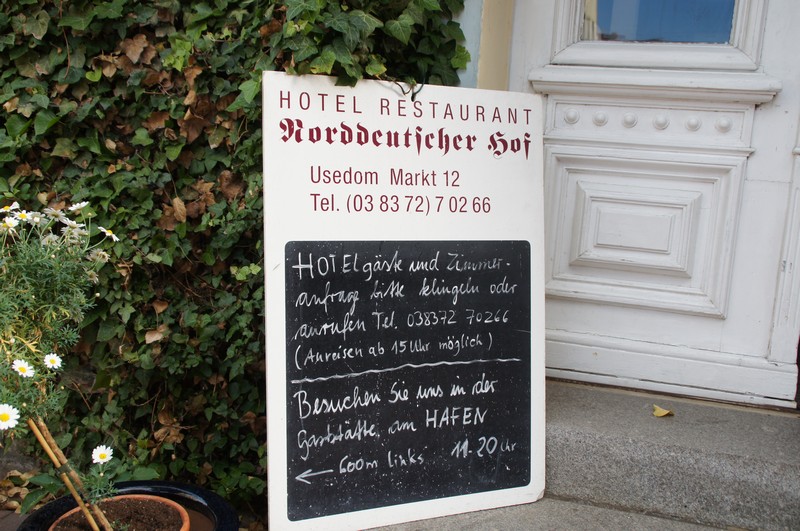 HOTEL RESTAURANT
Norddeutscher Hof
Usedom Markt 12
Tel. (03 83 72) 7 02 66
HOTELgäste und Zimmer-
anfrage bitte klingeln oder
anrufen Tel. 038372 70266
(Anreisen ab 15 Uhr möglich)
Besuchen Sie uns in der
Gaststätte am HAFEN
← 600m links 11-20 Uhr